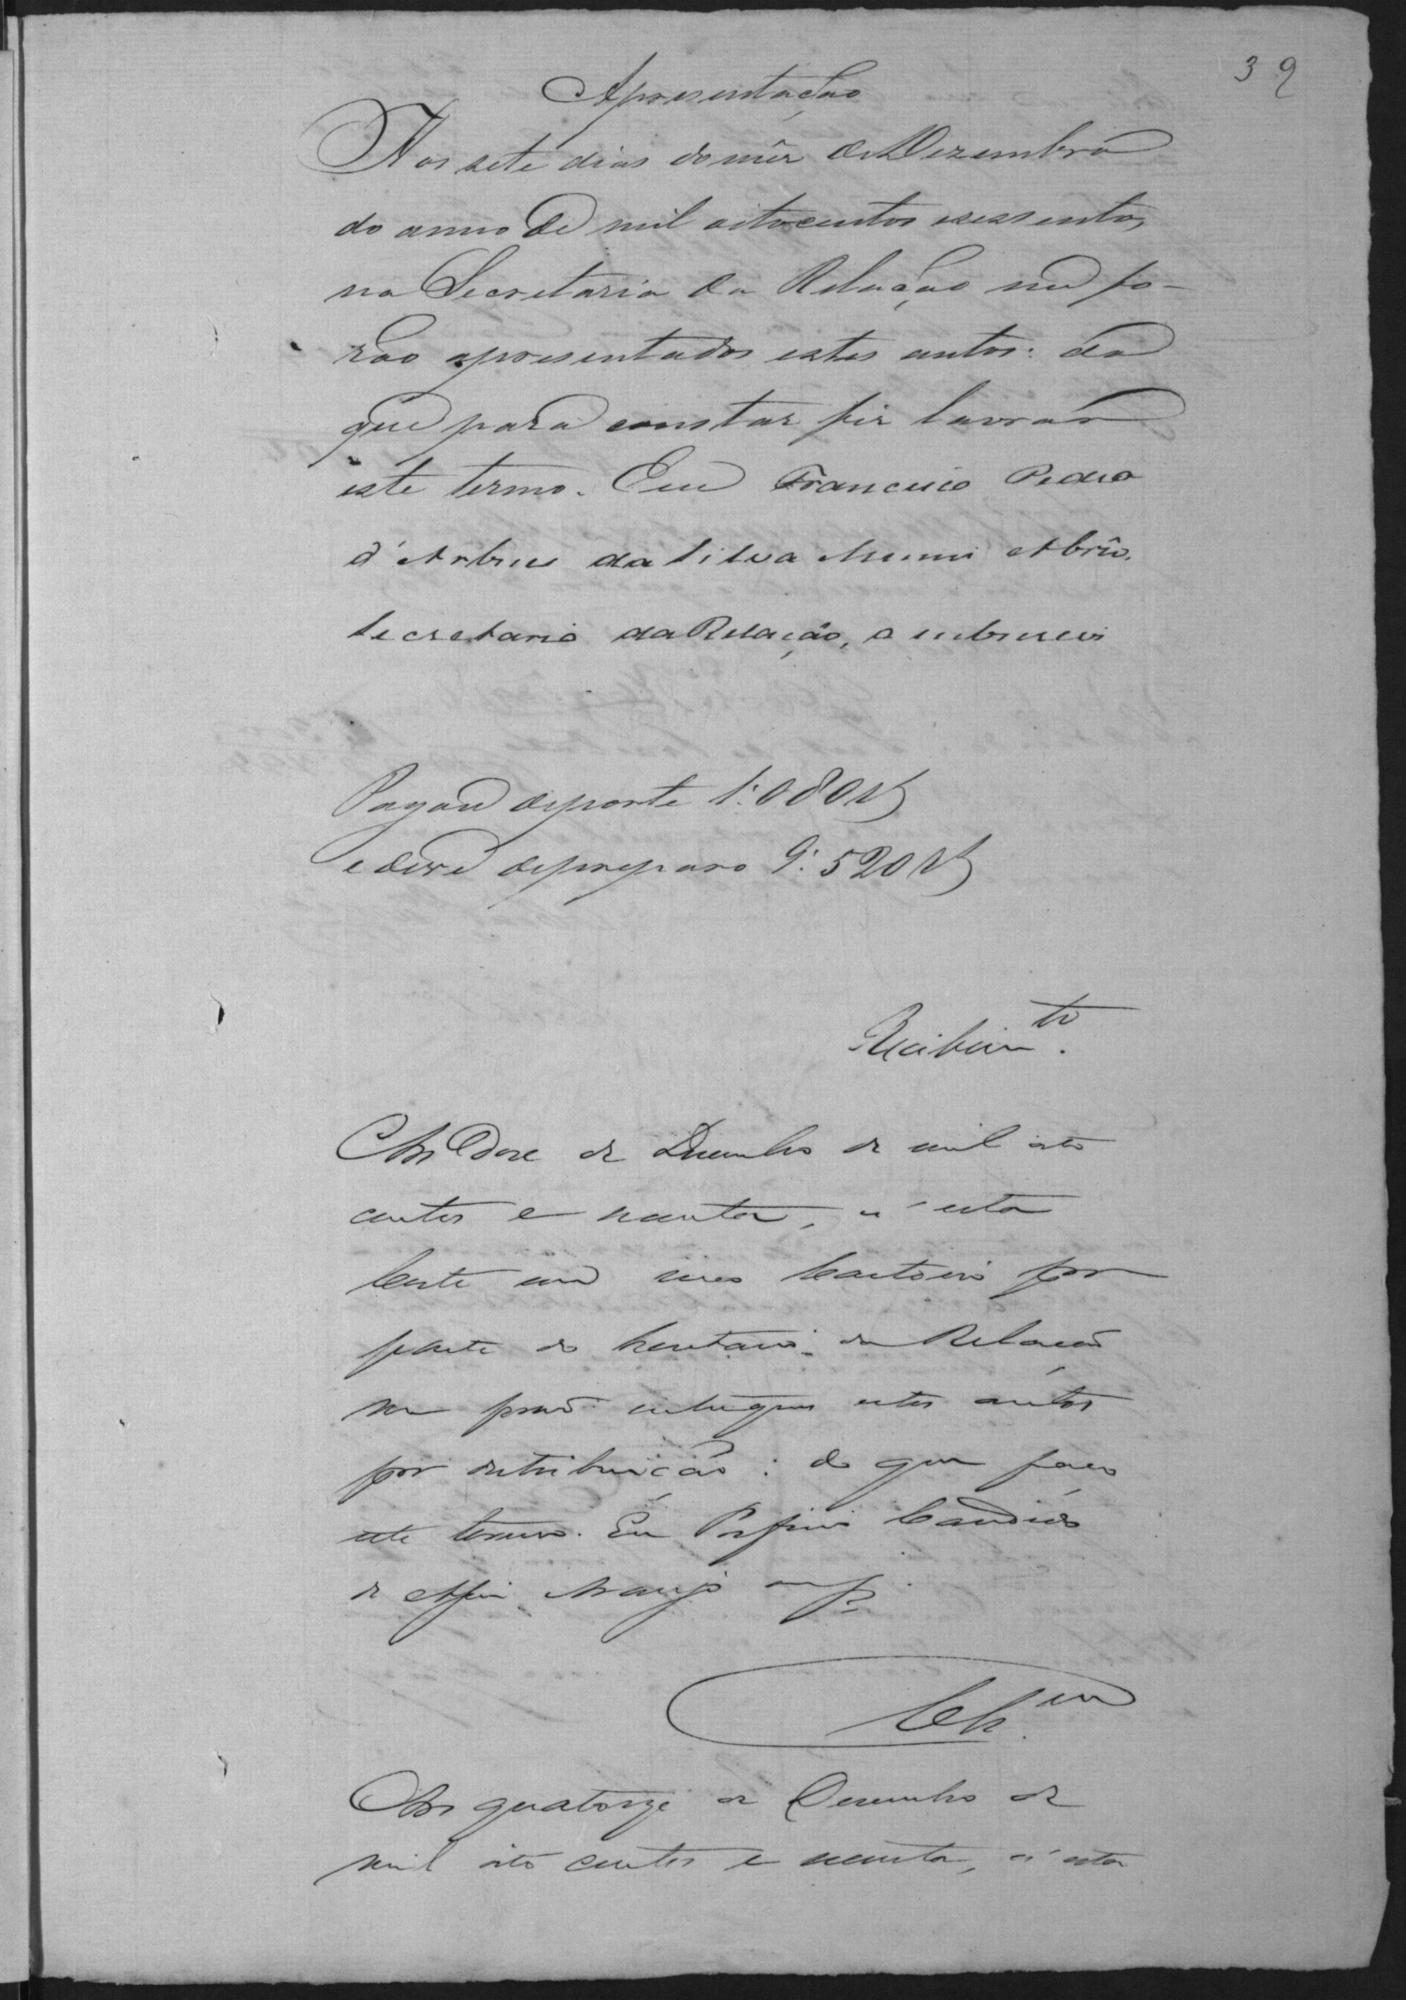 39
Apresentação
Aos sete dias do mêz de Dezembro
do anno de mil oitocentos esessenta,
na Secretaria da Relação me fo-
rão apresentados estes autos: do
que para constar fiz lavrar
este termo. Eu Francisco Pedro
d'Arbues da Silva Muniz Abrêo,
Secretario da Relação, o subscrevi
Pagou de porte 1:080 rs
e deve de preparo 9:520 rs
Recebim.to
Aos doze de Dezembro de mil oito
centos e secenta, n'esta
Corte em meo Cartorio por
parte do Secretario da Relação
me forão entregues estes autos
por distribuição: do que faço
este termo. Eu Porfirio Candido
de Assis Araujo
Clz.em
Aos quatorze de Dezembro de
mil oito centos e secenta, n'esta